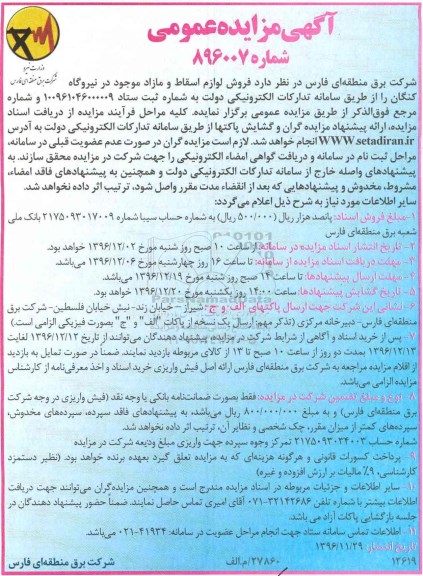 آگهی مزایده عمومی
شماره ۸۹۶۰۰۷
وزارت نیرو
شرکت برق منطقه‌ای فارس
شرکت برق منطقه‌ای فارس در نظر دارد فروش لوازم اسقاط و مازاد موجود در نیروگاه
کنگان را از طریق سامانه تدارکات الکترونیکی دولت به شماره ثبت ستاد ۱۰۰۹۶۱۰۴۶۰۰۰۰۰۹ و شماره
مرجع فوق‌الذکر از طریق مزایده عمومی برگزار نماید. کلیه مراحل فرآیند مزایده از دریافت اسناد
مزایده، ارائه پیشنهاد مزایده گران و گشایش پاکتها از طریق سامانه تدارکات الکترونیکی دولت به آدرس
WWW.setadiran.ir انجام خواهد شد. لازم است مزایده گران در صورت عدم عضویت قبلی در سامانه،
مراحل ثبت نام در سامانه و دریافت گواهی امضاء الکترونیکی را جهت شرکت در مزایده محقق سازند. به
پیشنهادهای واصله خارج از سامانه تدارکات الکترونیکی دولت و همچنین به پیشنهادهای فاقد امضاء،
مشروط، مخدوش و پیشنهادهایی که بعد از انقضاء مدت مقرر واصل شود، ترتیب اثر داده نخواهد شد.
سایر اطلاعات مورد نیاز به شرح ذیل اعلام می‌گردد:
۱-مبلغ فروش اسناد: پانصد هزار ریال (۵۰۰/۰۰۰ ریال) به شماره حساب سیبا شماره ۲۱۷۵۰۹۳۰۱۷۰۰۹ بانک ملی
شعبه برق منطقه‌ای فارس
۲- تاریخ انتشار اسناد مزایده در سامانه: از ساعت ۱۰ صبح روز شنبه مورخ ۱۳۹۶/۱۲/۰۲ خواهد بود.
۳- مهلت دریافت اسناد مزایده از سامانه: تا ساعت ۱۶ روز چهارشنبه مورخ ۱۳۹۶/۱۲/۰۶ می‌باشد.
۴- مهلت ارسال پیشنهادها: تا ساعت ۱۴ صبح روز شنبه مورخ ۱۳۹۶/۱۲/۱۹ می‌باشد.
۵- تاریخ گشایش پیشنهادها: ساعت ۱۴:۰۰ روز یکشنبه مورخ ۱۳۹۶/۱۲/۲۰ خواهد بود.
۶- نشانی این شرکت جهت ارسال پاکتهای الف و ج: شیراز - خیابان زند- نبش خیابان فلسطین-شرکت برق
منطقه‌ای فارس- دبیرخانه مرکزی (تذکر مهم: ارسال یک نسخه از پاکات "الف" و "ج" بصورت فیزیکی الزامی است.)
۷- پس از خرید اسناد و آگاهی از شرایط شرکت در مزایده، پیشنهاد دهندگان می‌توانند از تاریخ ۱۳۹۶/۱۲/۱۲ لغایت
۱۳۹۶/۱۲/۱۳ بمدت دو روز از ساعت ۱۰ صبح تا ۱۳ از کالای مربوطه بازدید نمایند. ضمناً در صورت تمایل به بازدید
از اقلام مزایده مراجعه به شرکت برق منطقه‌ای فارس ارائه اصل فیش واریزی خرید اسناد و اخذ معرفی‌نامه از کارشناس
مزایده الزامی می‌باشد.
۸- نوع و مبلغ تضمین شرکت در مزایده: فقط بصورت ضمانت‌نامه بانکی یا وجه نقد (فیش واریزی در وجه شرکت
برق منطقه‌ای فارس) و به مبلغ ۸۰۰/۰۰۰/۰۰۰ ریال می‌باشد، به پیشنهادهای فاقد سپرده، سپرده‌های مخدوش،
سپرده‌های کمتر از میزان مقرر، چک شخصی و نظایر آن، ترتیب اثر داده نخواهد شد.
شماره حساب ۲۱۷۵۰۹۳۰۳۴۰۰۳ تمرکز وجوه سپرده جهت واریزی مبلغ ودیعه شرکت در مزایده
۹- پرداخت کسورات قانونی و هرگونه هزینه‌ای که به مزایده تعلق گیرد بعهده برنده خواهد بود. (نظیر دستمزد
کارشناسی، ۹٪ مالیات بر ارزش افزوده و غیره)
۱۰- سایر اطلاعات و جزئیات مربوطه در اسناد مزایده مندرج است و همچنین مزایده‌گران می‌توانند جهت دریافت
اطلاعات بیشتر با شماره تلفن ۳۲۱۴۲۶۸۶-۰۷۱ آقای امیری تماس حاصل نمایند. ضمناً حضور پیشنهاد دهندگان در
جلسه بازگشایی پاکات آزاد می باشد.
۱۱- اطلاعات تماس سامانه ستاد جهت انجام مراحل عضویت در سامانه: ۴۱۹۳۴-۰۲۱ می‌باشد.
تاریخ انتشار: ۱۳۹۶/۱۱/۲۹
۱۲۶۱۹
۲۷۸۶۰/م‌الف
شرکت برق منطقه‌ای فارس